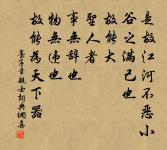 是故江河不惡小
谷之滿己也
故能大
聖人者
事無辭也
物無違也
故能為天下器
墨子音親士詞典網喜